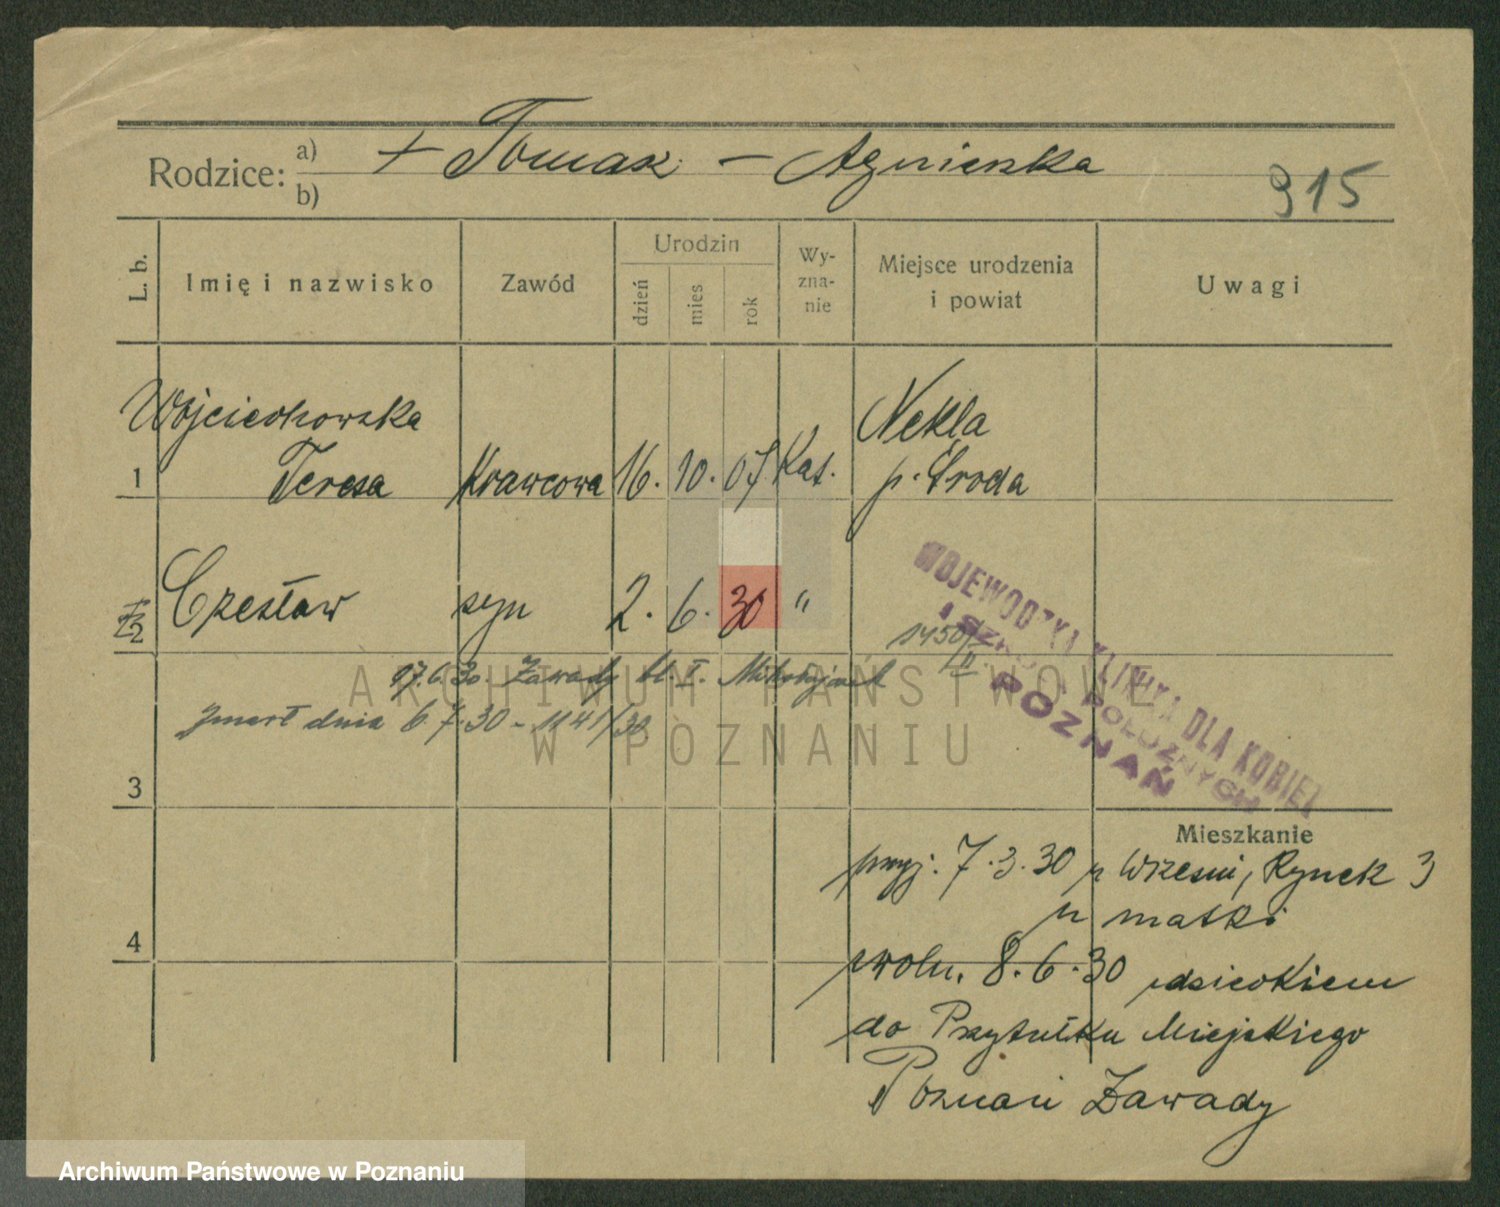 Rodzice: a) + Tomasz - Agnieszka
b)
915
L. b. Imię i nazwisko Zawód Urodzin dzień mies rok Wy-zna-nie Miejsce urodzenia i powiat Uwagi
Wojciechowska Nekla
1 Teresa Krawcowa 16. 10. 07 Kat. p. Środa
2 Czesław syn 2. 6. 30 "
WOJEWÓDZKA KLINIKA DLA KOBIET
I SZKOŁA POŁOŻNYCH
POZNAŃ
1450/II
17.6.30. Zawady
zmarł dnia 6.7.30 - 1141/30
ARCHIWUM PAŃSTWOWE
W POZNANIU
3
Mieszkanie
przyj. 7.3.30 z Wrześni, Rynek 3
u matki
4
zwoln. 8.6.30 z dzieckiem
do Przytułku Miejskiego
Poznań Zawady
Archiwum Państwowe w Poznaniu